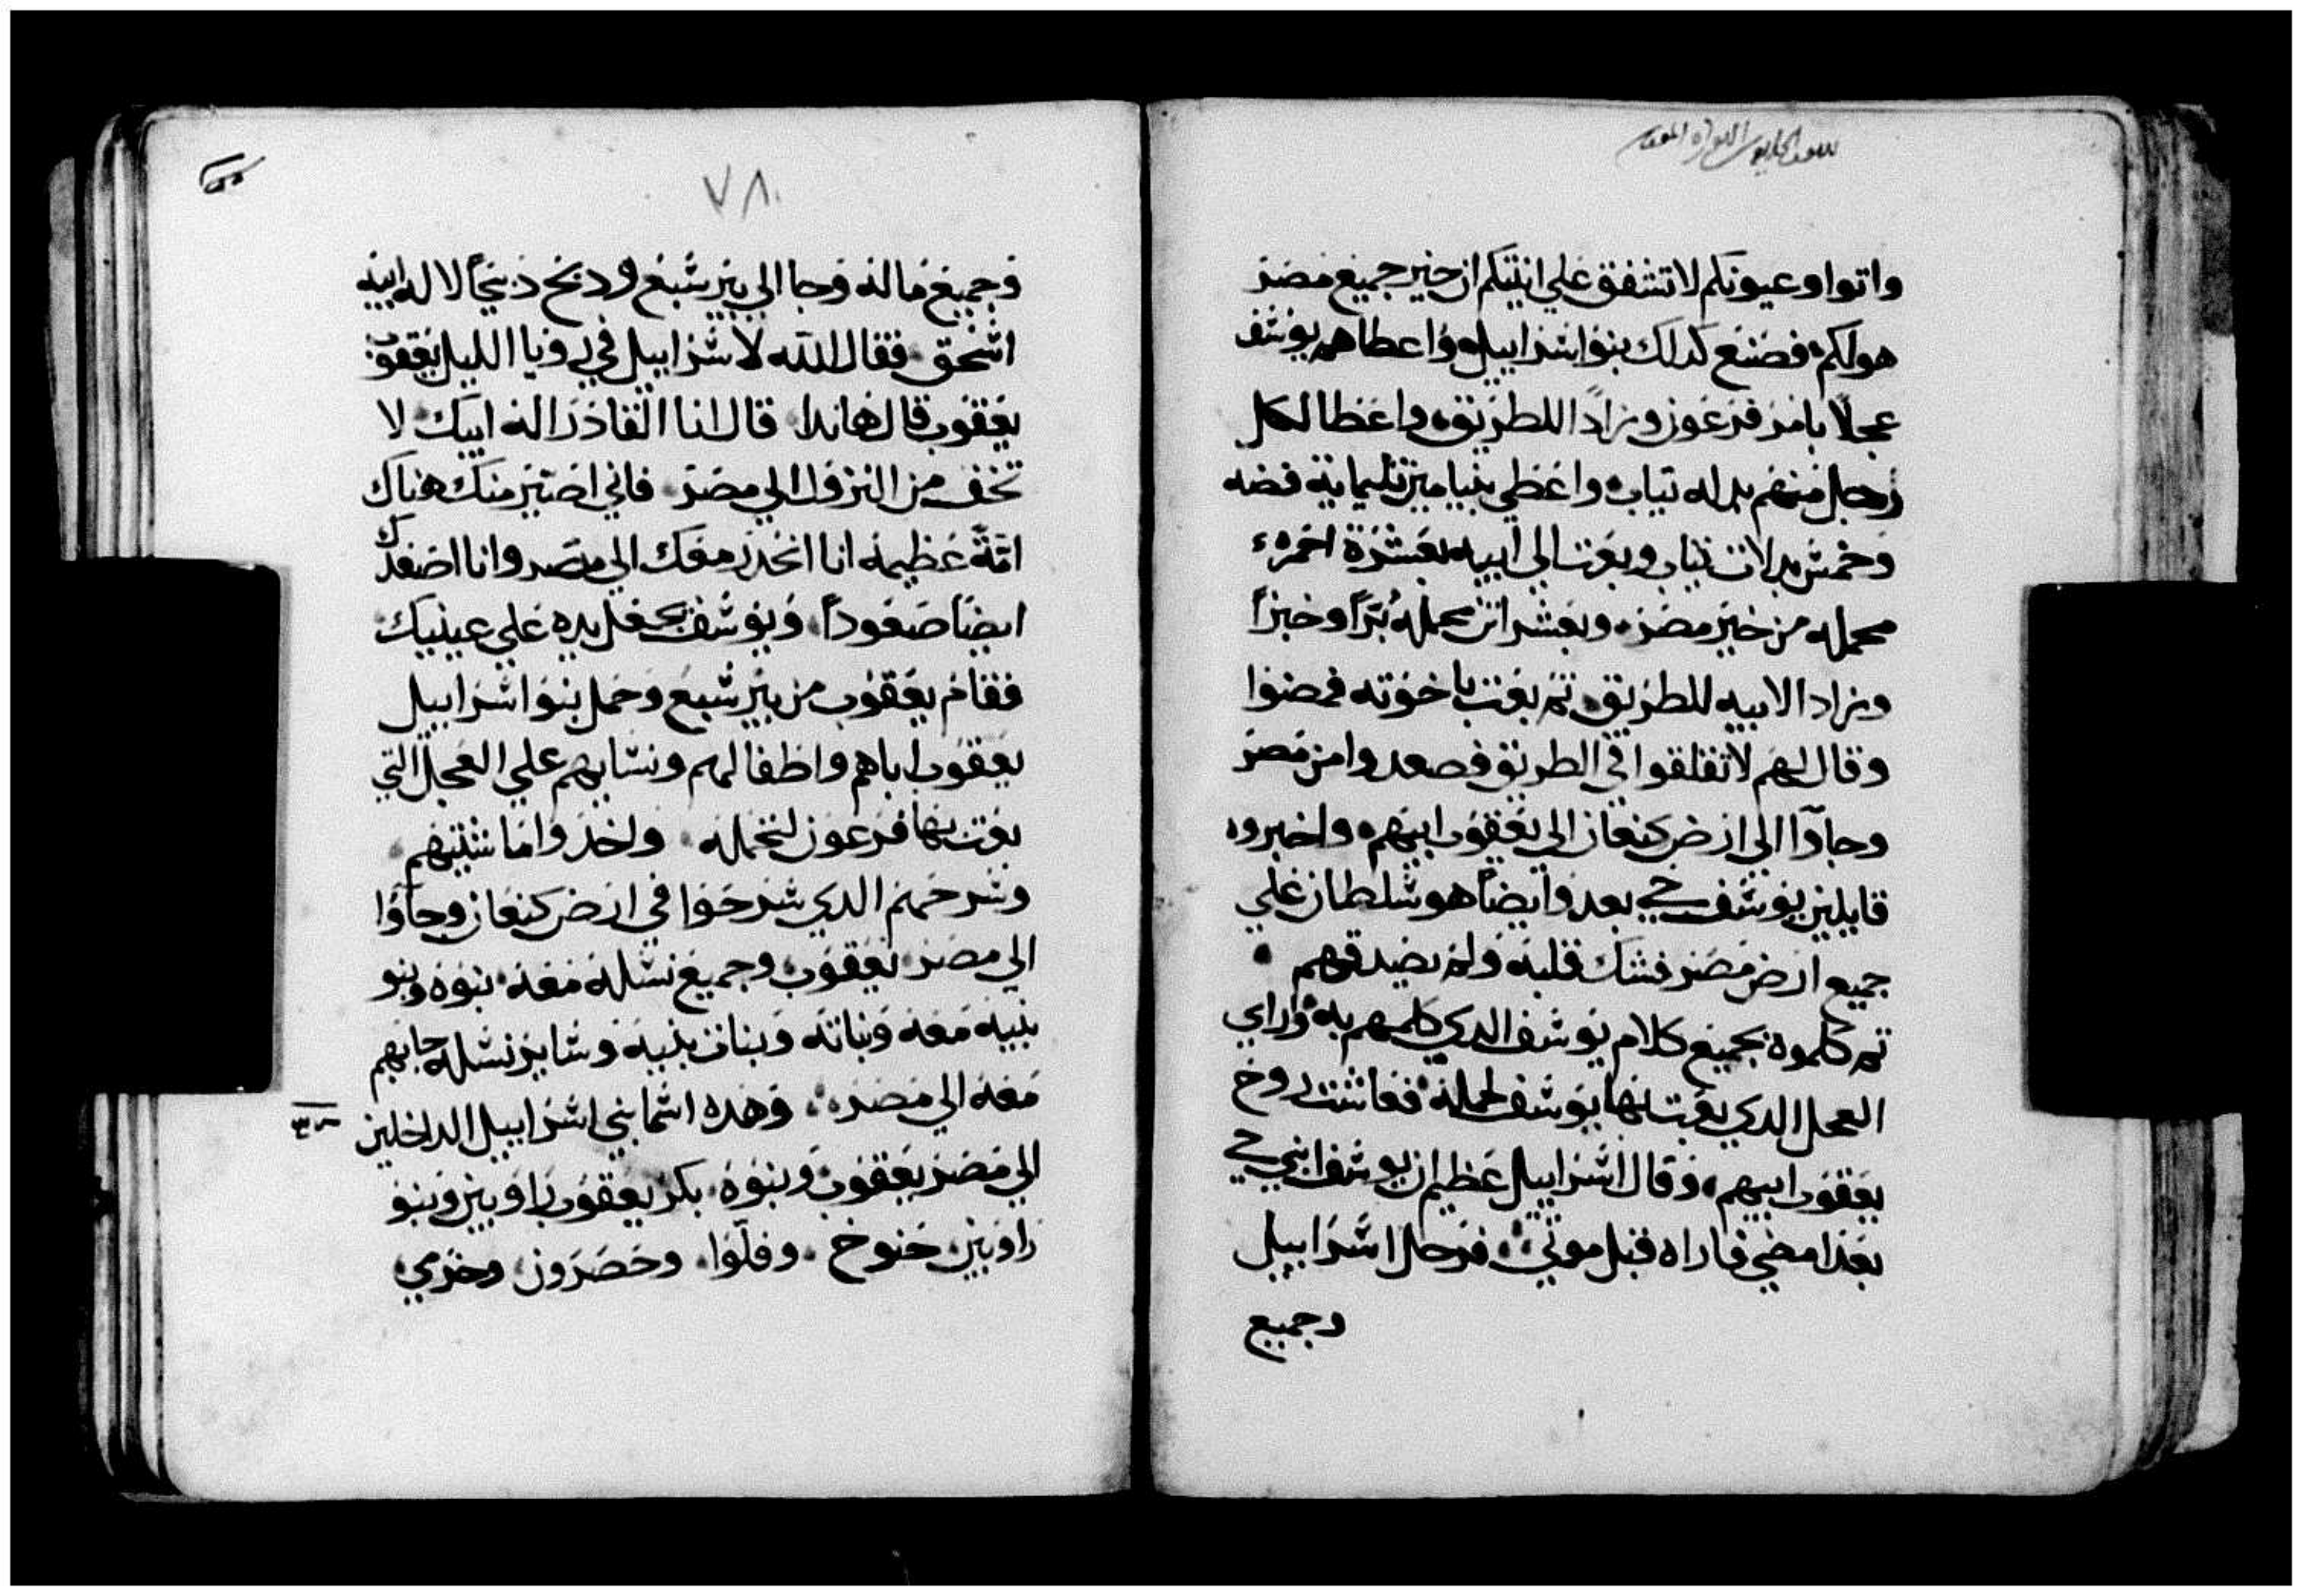 واتوا وعيونكم لا تشفق علي انيتكم ان خير جميع مصر
هو لكم فصنع كدلك بنوا اسراييل واعطاهم يوسف
عجلا بامر فرعون وزادا للطريق واعطا لكل
رجل منهم بدله تياب واعطي بنيامين تليماية فضه
وخمس بدلات تياب وبعت الي ابيه بعشرة احمره
محمله من خير مصر وبعشر اتن محمله برا وخبزا
وزادا لابيه للطريق تم بعت باخوته فمضوا
وقال لهم لا تقلقوا في الطريق فصعدوا من مصر
وجاوا الي ارض كنعان الي يعقوب ابيهم واخبروه
قايلين يوسف حي بعد وايضا هو سلطان علي
جميع ارض مصر فشك قلبه ولم يصدقهم
تم كلموه بجميع كلام يوسف الدي كلمهم به وراي
العجل الدي بعت بها يوسف لحمله فعاشت روح
يعقوب ابيهم وقال اسراييل عظيم ان يوسف ابني حي
بعد امضي فاراه قبل موتي فرحل اسراييل
وجميع
٧٨
وجميع ماله وجا الي بير سبع ودبح دبيحا لاله ابيه
اسحق فقال الله لاسراييل في رويا الليل يعقوب
يعقوب قال هاندا قال انا القادر اله ابيك لا
تخف من النزول الي مصر فاني اصير منك هناك
امة عظيمه انا انحدر معك الي مصر وانا اصعدك
ايضا صعودا ويوسف يجعل يده علي عينيك
فقام يعقوب من بير سبع وحمل بنوا اسراييل
يعقوب اباهم واطفالهم ونسايهم علي العجل التي
بعت بها فرعون لتحمله واخدوا ماشيتهم
وسرحهم الدي سرحوا في ارض كنعان وجاوا
الي مصر يعقوب وجميع نسله معه بنوه وبنو
بنيه معه وبناته وبنات بنيه وساير نسله جابهم
معه الي مصر وهده اسما بني اسراييل الداخلين
الي مصر يعقوب وبنوه بكر يعقوب راوبين وبنو
راوبين حنوخ وفلوا وحصرون وخرمي